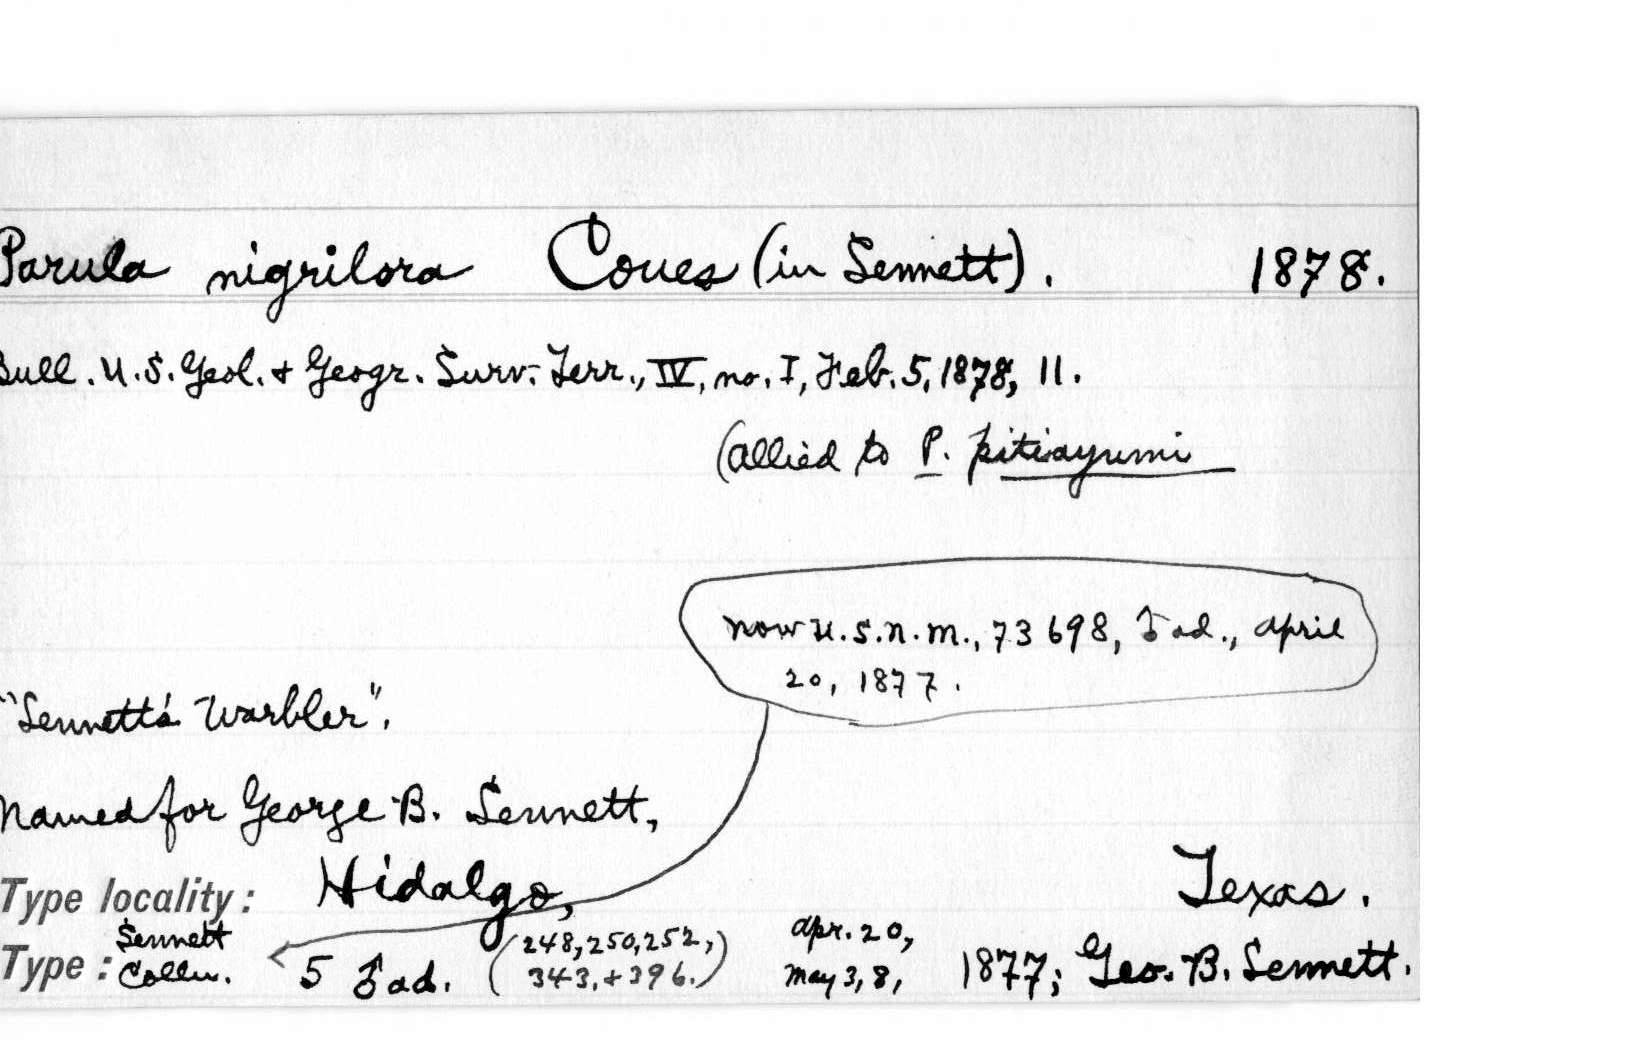 Parula nigrilora Coues (in Sennett). 1878.
Bull. U.S. Geol. & Geogr. Surv. Terr., IV, no. I, Feb. 5, 1878, 11.
(allied to P. pitiayumi
now U.S.N.M., 73698, ♂ ad., April
20, 1877.
"Sennett's Warbler".
Named for George B. Sennett,
Type locality: Hidalgo, Texas.
Type: Sennett Colln. 5 ♂ ad. (248, 250, 252, 343, + 396.) Apr. 20, May 3, 8, 1877; Geo. B. Sennett.